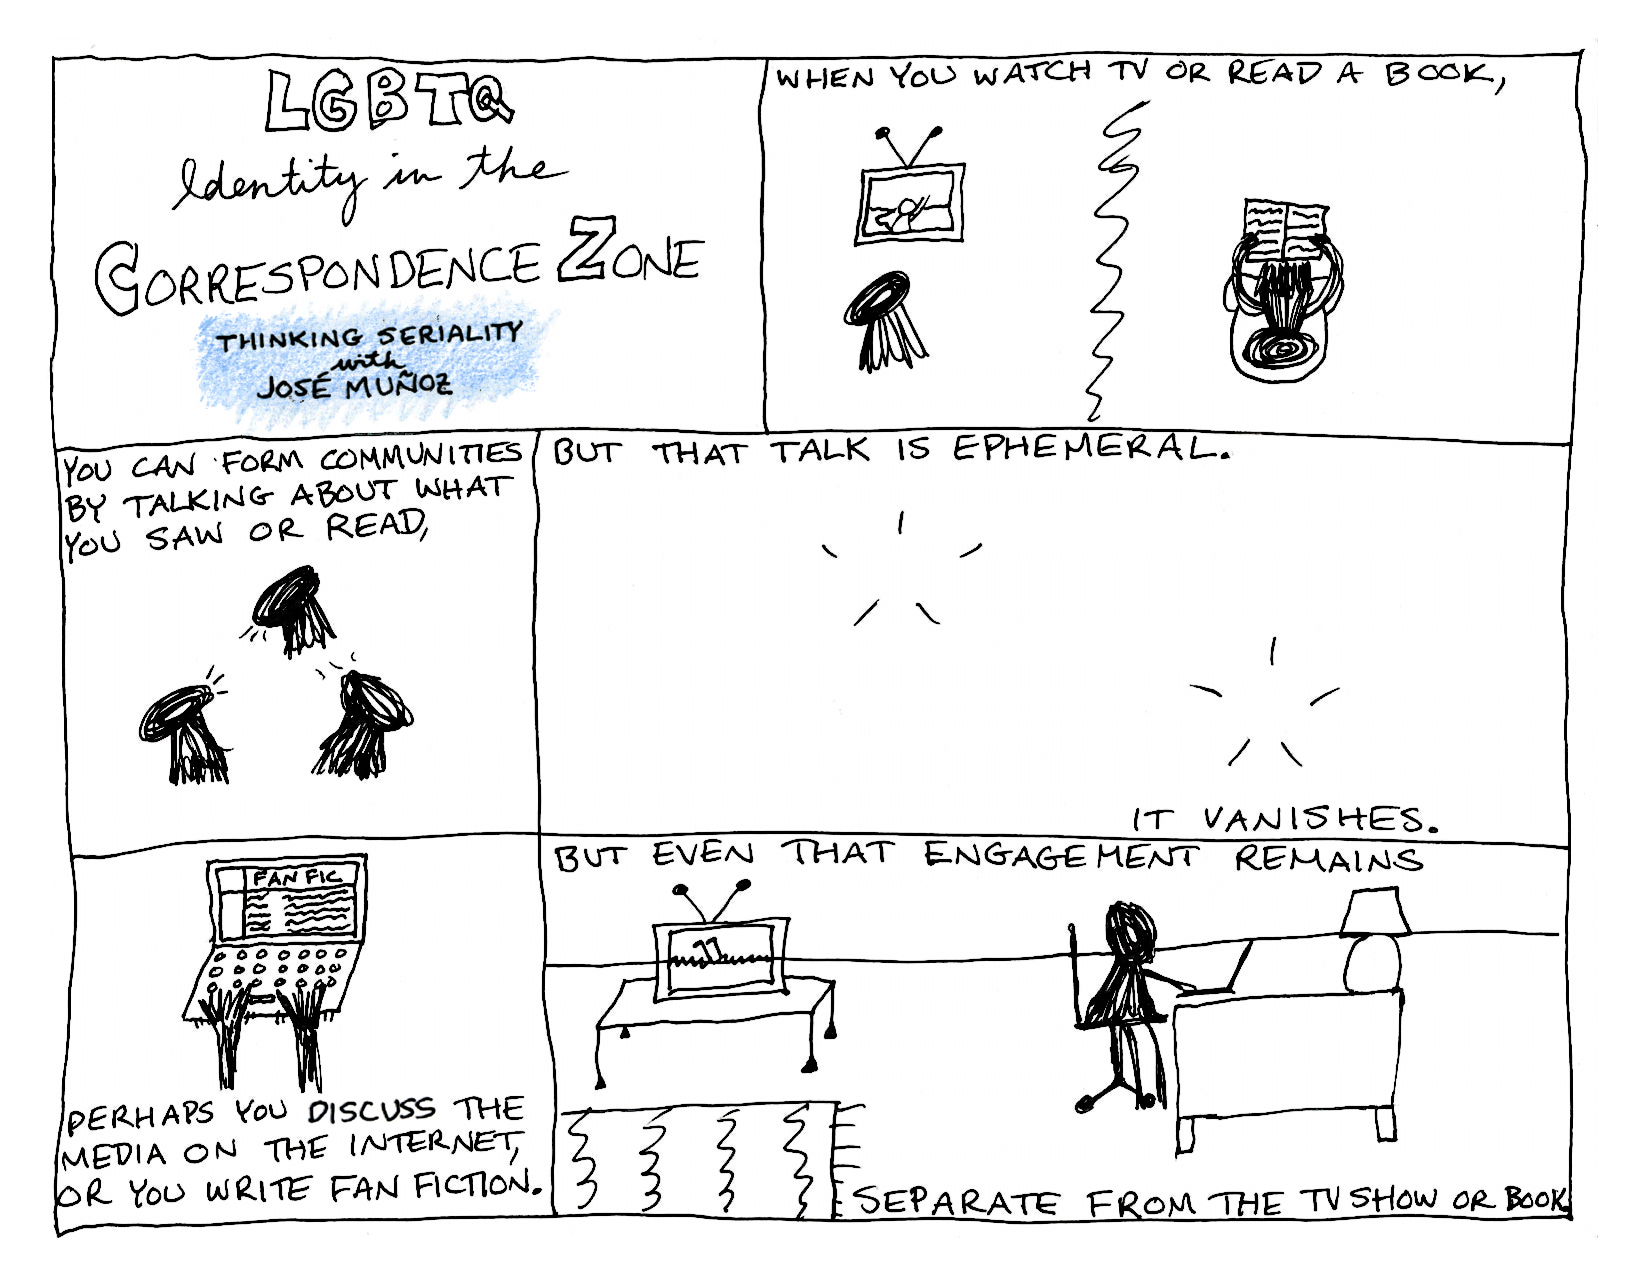 LGBTQ
Identity in the
CORRESPONDENCE ZONE
THINKING SERIALITY
with
JOSÉ MUÑOZ
WHEN YOU WATCH TV OR READ A BOOK,
YOU CAN FORM COMMUNITIES
BY TALKING ABOUT WHAT
YOU SAW OR READ,
BUT THAT TALK IS EPHEMERAL.
IT VANISHES.
FAN FIC
PERHAPS YOU DISCUSS THE
MEDIA ON THE INTERNET,
OR YOU WRITE FAN FICTION.
BUT EVEN THAT ENGAGEMENT REMAINS
SEPARATE FROM THE TV SHOW OR BOOK